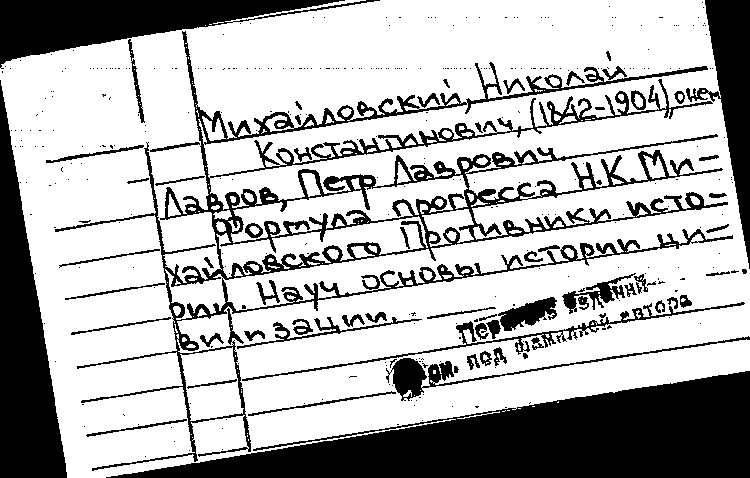 Михайловский, Николай
Константинович, (1842-1904), о нем
Лавров, Петр Лаврович.
Формула прогресса Н.К. Ми-
хайловского Противники исто-
рии. Науч. основы истории ци-
вилизации.
Перечень изданий
см. под фамилией автора